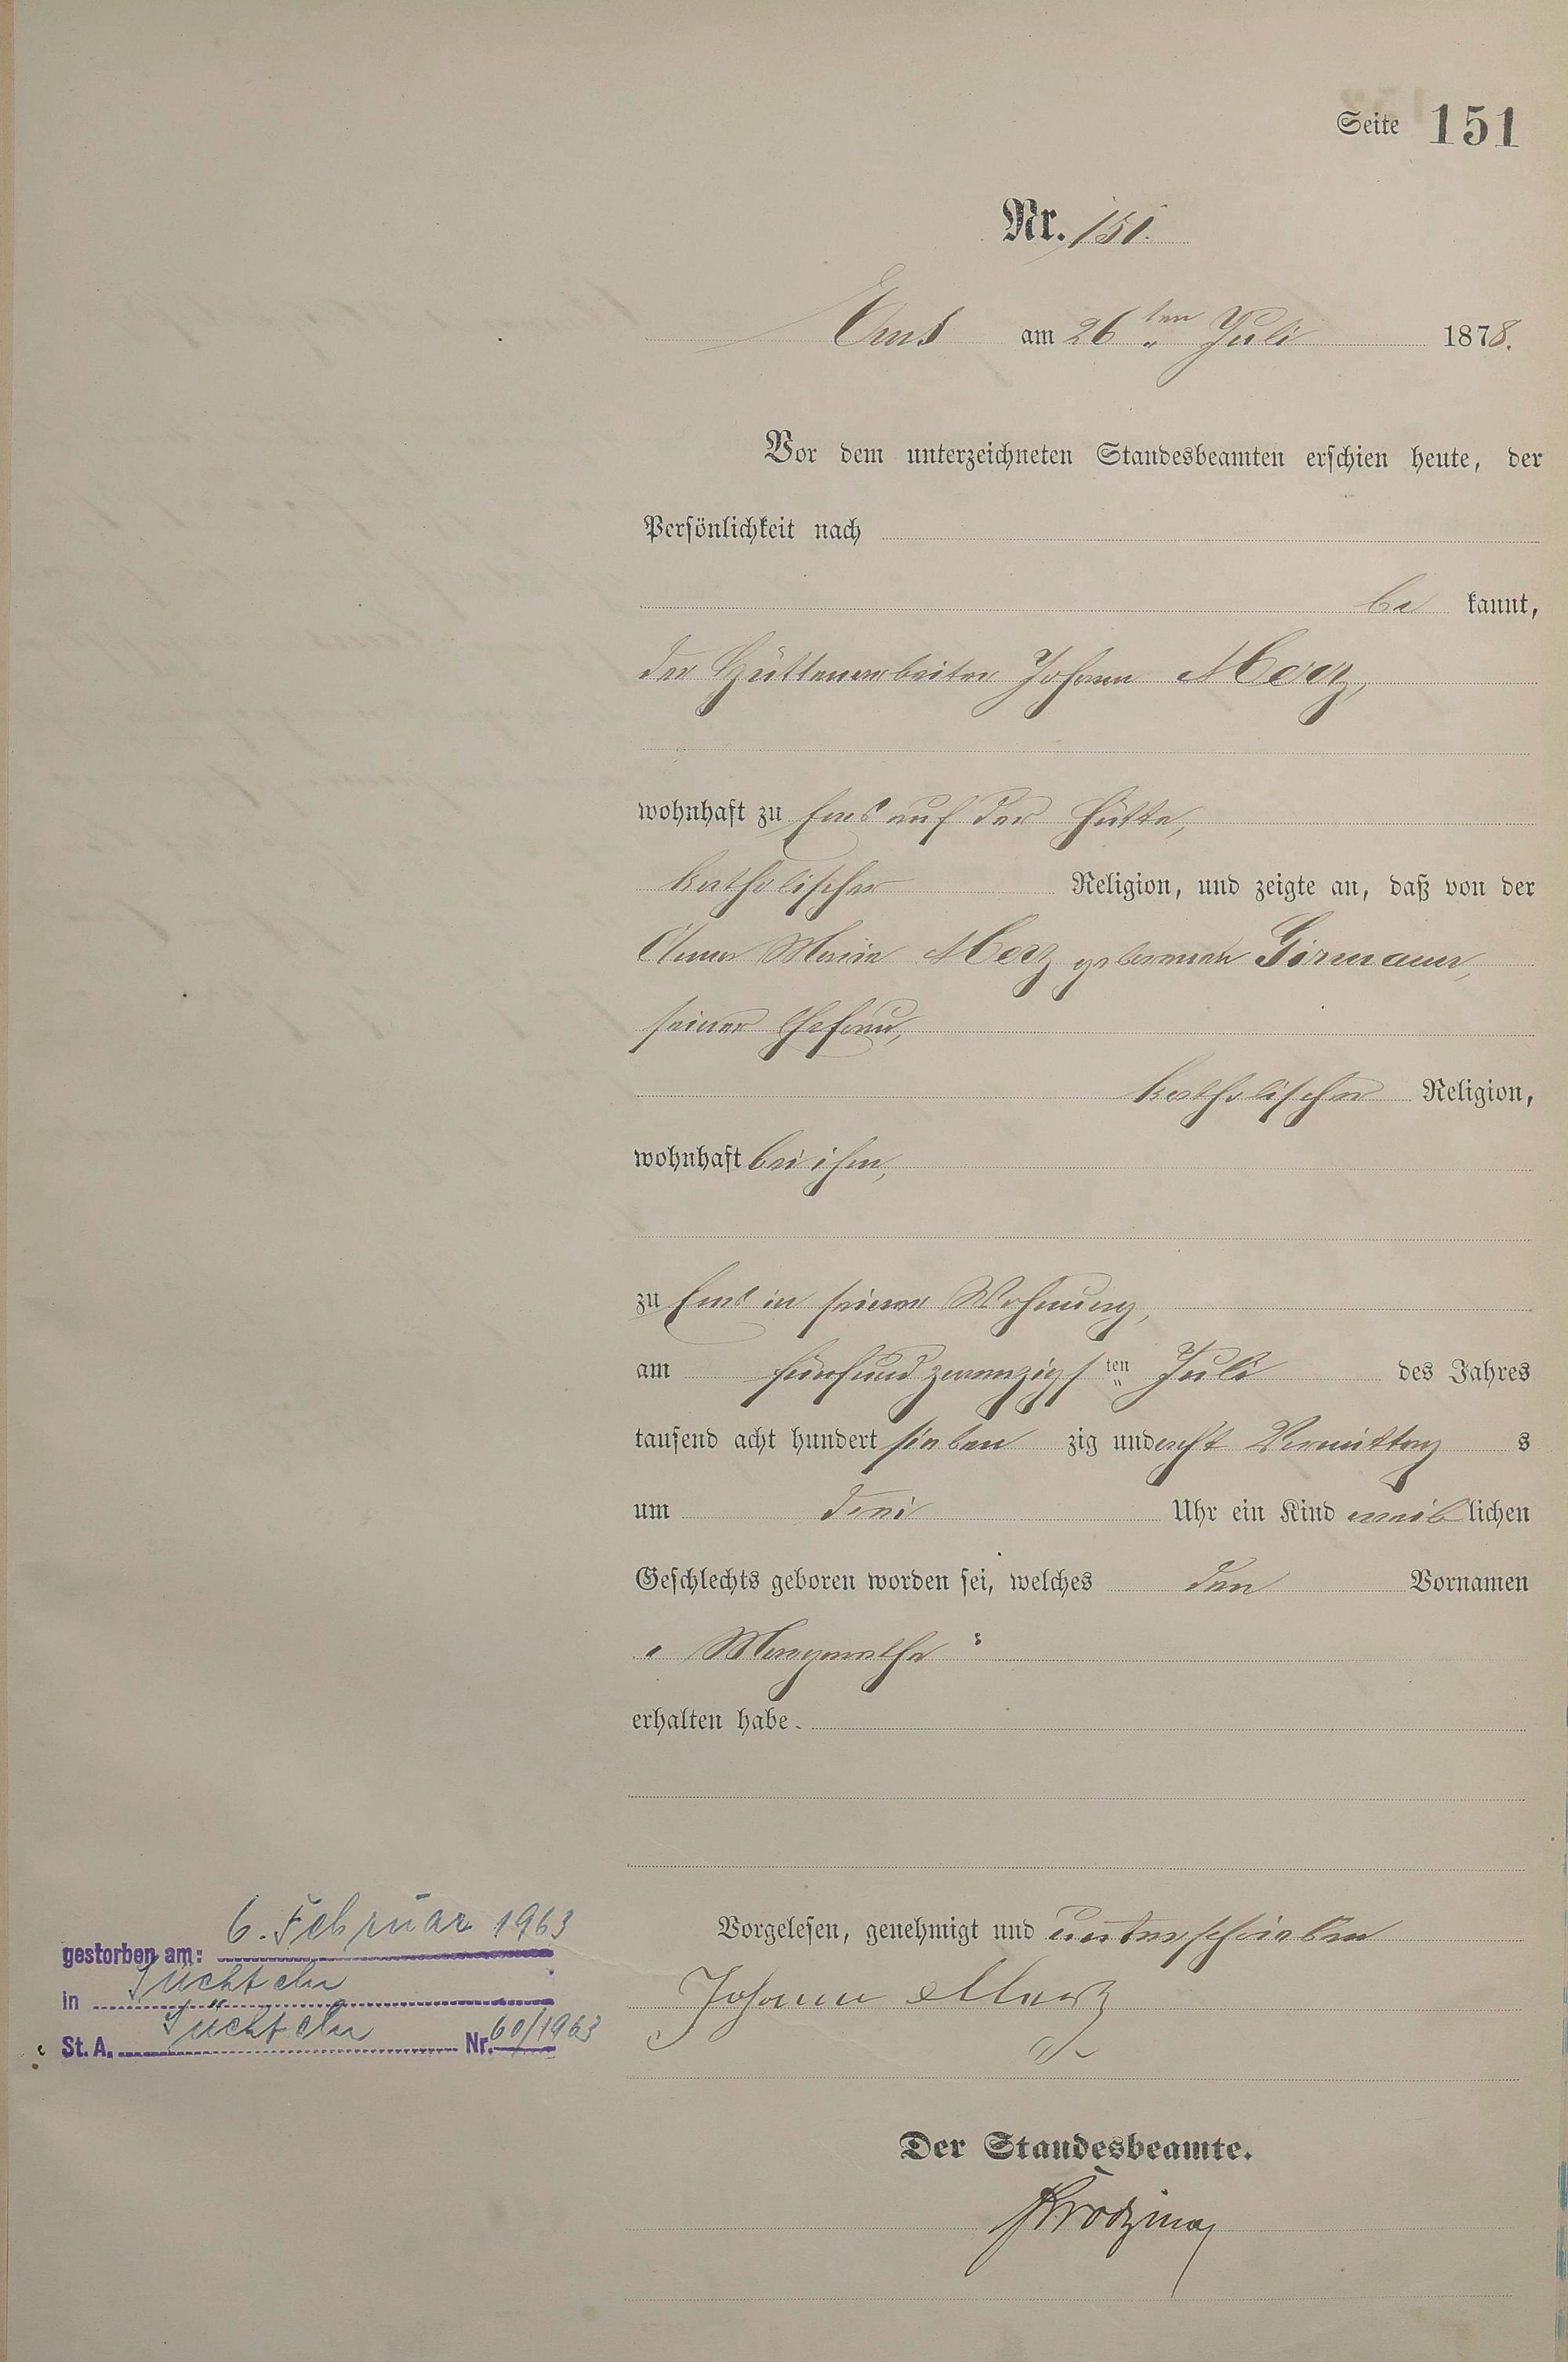 Seite 151
Nr. 151.
Ems am 26ten Juli 1878.
Vor dem unterzeichneten Standesbeamten erschien heute, der
Persönlichkeit nach
be kannt,
der Hüttenarbeiter Johann Merz,
wohnhaft zu Ems auf der Hütte,
katholischer Religion, und zeigte an, daß von der
Anna Maria Merz geborenen Girmann,
seiner Ehefrau,
katholischer Religion,
wohnhaft bei ihm,
zu Ems in seiner Wohnung,
am fünfundzwanzigsten Juli des Jahres
tausend acht hundert sieben zig und acht Vormittag s
um drei Uhr ein Kind weib lichen
Geschlechts geboren worden sei, welches den Vornamen
„Margarethe“
erhalten habe.
Vorgelesen, genehmigt und unterschrieben
Johann Merz
Der Standesbeamte.
gestorben am: 6. Februar 1963
in Süchteln
St. A. Süchteln Nr. 60/1963